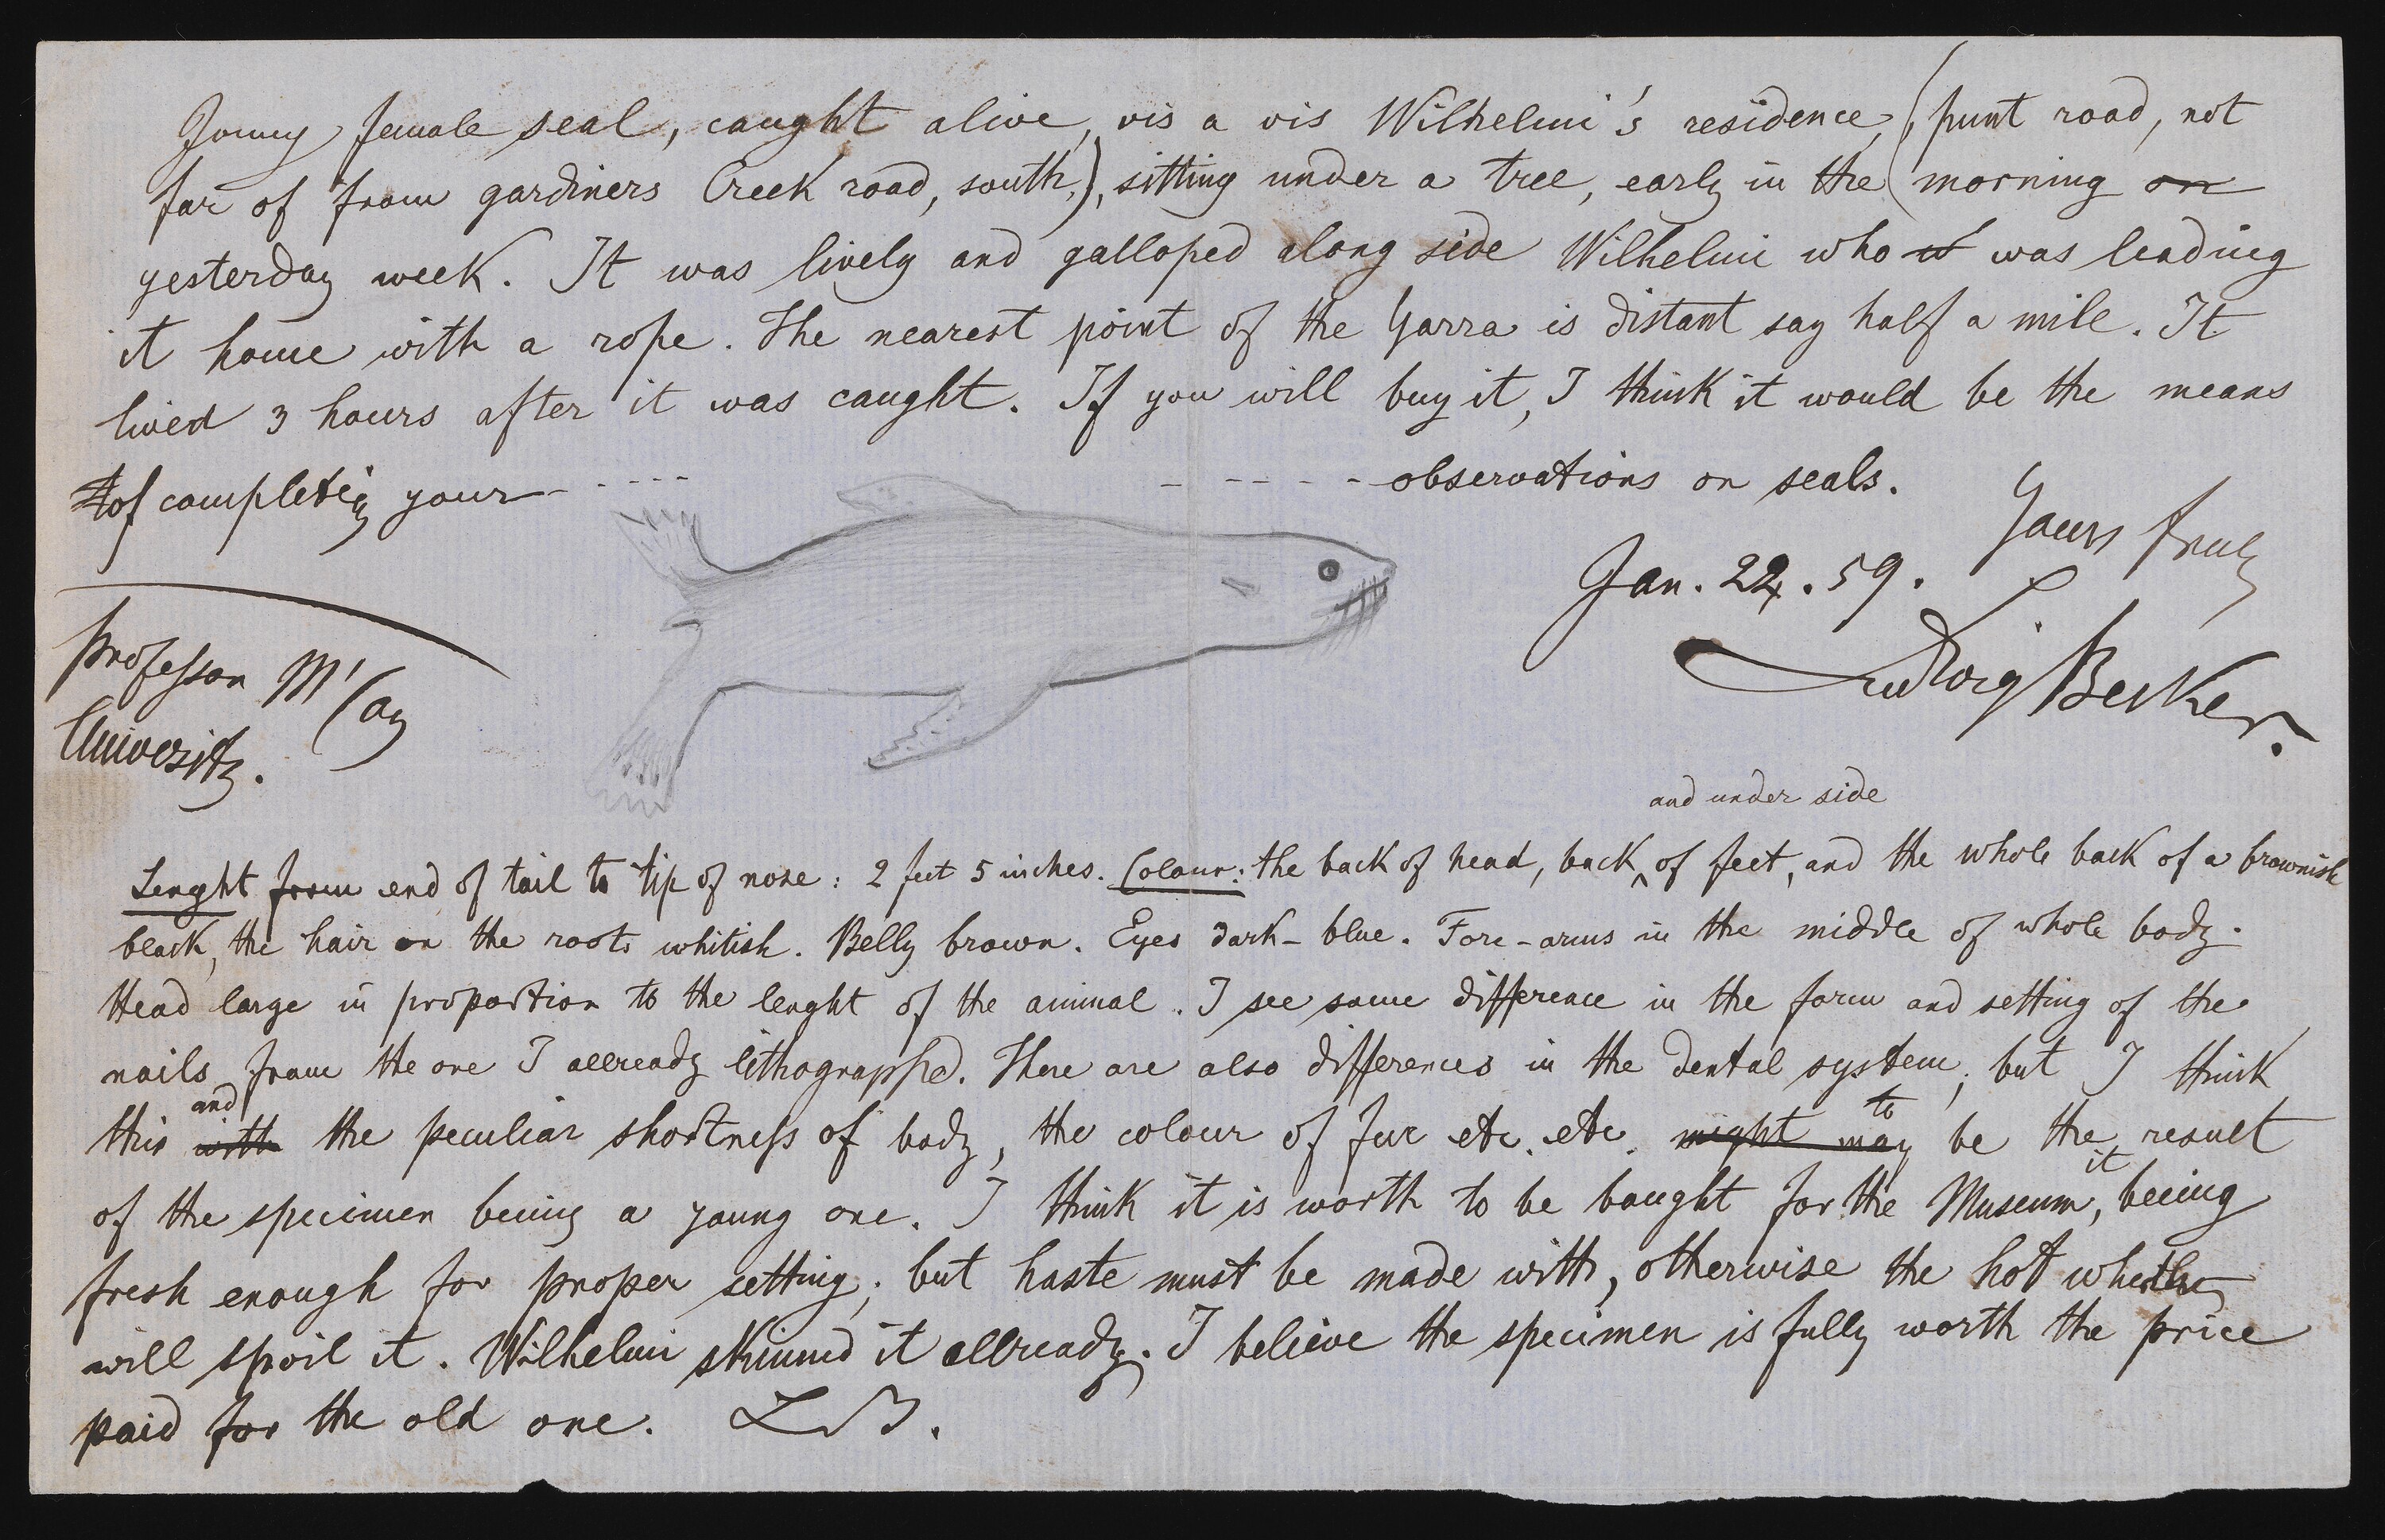 Young female seal, caught alive, vis a vis Wilhelmi's residence, (punt road, not
far of from gardiners Creek road, south,), sitting under a tree, early in the morning on
yesterday week. It was lively and galloped along side Wilhelmi who it was leading
it home with a rope. The nearest point of the Yarra is distant say half a mile. It
lived 3 hours after it was caught. If you will buy it, I think it would be the means
of completing your - - - - - - - - - observations on seals.
Yours truly
Jan. 22. 59.
Ludwig Becker.
Professor M'Coy
University.
and under side
Lenght from end of tail to tip of nose: 2 feet 5 inches. Colour: the back of head, back ^ of feet, and the whole back of a brownish
black, the hair on the roots whitish. Belly brown. Eyes dark-blue. Fore-arms in the middle of whole body.
Head large in proportion to the lenght of the animal. I see some difference in the form and setting of the
nails from the one I allready lithographed. There are also differences in the dental system; but I think
and to
this with the peculiar shortness of body, the colour of fur etc. etc. might may be the result
it
of the specimen being a young one. I think it is worth to be bought for the Museum, being
fresh enough for proper setting; but haste must be made with, otherwise the hot whether
will spoil it. Wilhelmi skinned it allready. I believe the specimen is fully worth the price
paid for the old one. L B.